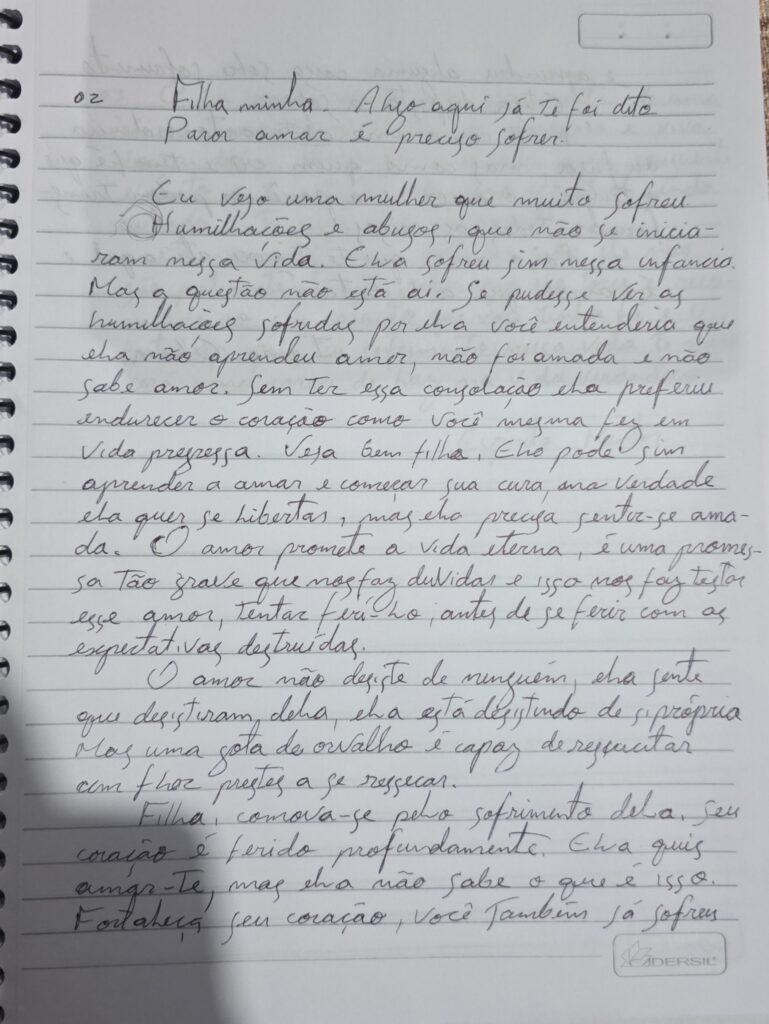 02 Filha minha. Algo aqui já te foi dito
Para amar é preciso sofrer.
Eu vejo uma mulher que muito sofreu
Humilhações e abusos, que não se inicia-
ram nessa vida. Ela sofreu sim nessa infancia.
Mas a questão não está ai. Se pudesse ver as
humilhações sofridas por ela você entenderia que
ela não aprendeu amor, não foi amada e não
sabe amor. Sem ter essa consolação ela preferiu
endurecer o coração como você mesma fez em
vida pregressa. Veja bem filha, Ela pode sim
aprender a amar e começar sua cura, na verdade
ela quer se libertar, mas ela precisa sentir-se ama-
da. O amor promete a vida eterna, é uma promes-
sa tão grave que nos faz duvidar e isso nos faz testar
esse amor, tentar feri-lo, antes de se ferir com as
expectativas destruídas.
O amor não desiste de ninguém, ela sente
que desistiram dela, ela está desistindo de si própria
Mas uma gota de orvalho é capaz de ressucitar
um flor prestes a se ressecar.
Filha, comova-se pelo sofrimento dela. Seu
coração é ferido profundamente. Ela quis
amar-te, mas ela não sabe o que é isso.
Fortaleça seu coração, você também já sofreu
CADERSIL